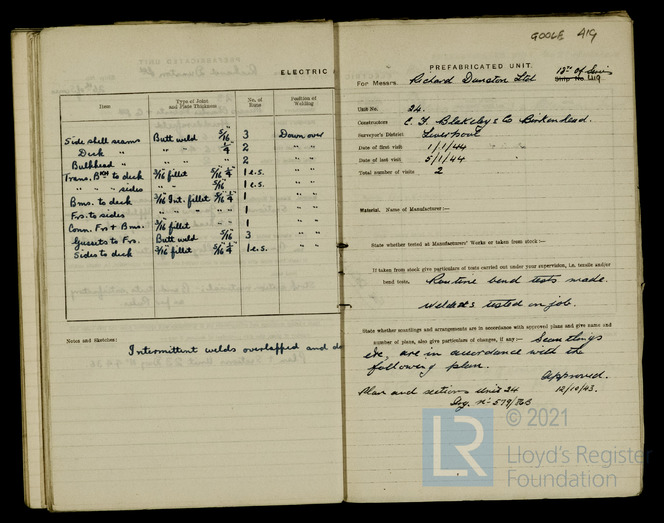 ELECTRIC
Item
Type of Joint and Plate Thickness
No. of Runs
Position of Welding
Side shell seams Butt weld 5/16" 3 Down over
Deck " " " 1/4" 2 " "
Bulkhead " " " 2 " "
Trans. Bhd to deck 3/16 fillet 5/16 1/4 1 e.s. " "
" " " sides " " 5/16 1 e.s. " "
Bms. to deck 3/16 Int. fillet 5/16 1/4 1 " "
Frs. to sides " " " " 1 " "
Conn. Frs & Bms. 3/16 fillet 1 " "
Gussets to Frs. Butt weld 5/16 3 " "
Sides to deck 3/16 fillet 5/16 1/4 1 e.s. " "
Notes and Sketches:
Intermittent welds overlapped and
GOOLE 419
PREFABRICATED UNIT.
12th of Series
For Messrs. Richard Dunston Ltd Ship No. 419
Unit No. 24.
Constructors C. F. Blakeley & Co Birkenhead.
Surveyor's District Liverpool
Date of first visit 1/1/44
Date of last visit 5/1/44
Total number of visits 2
Material. Name of Manufacturer:—
State whether tested at Manufacturers' Works or taken from stock:—
If taken from stock give particulars of tests carried out under your supervision, i.e. tensile and/or
bend tests, Routine bend tests made.
Welders tested on job.
State whether scantlings and arrangements are in accordance with approved plans and give name and
number of plans, also give particulars of changes, if any:— Scantlings
etc, are in accordance with the
following plan.
Approved.
Plan and sections Unit 24 12/10/43.
Drg. No 579/
© 2021
LR
Lloyd's Register
Foundation